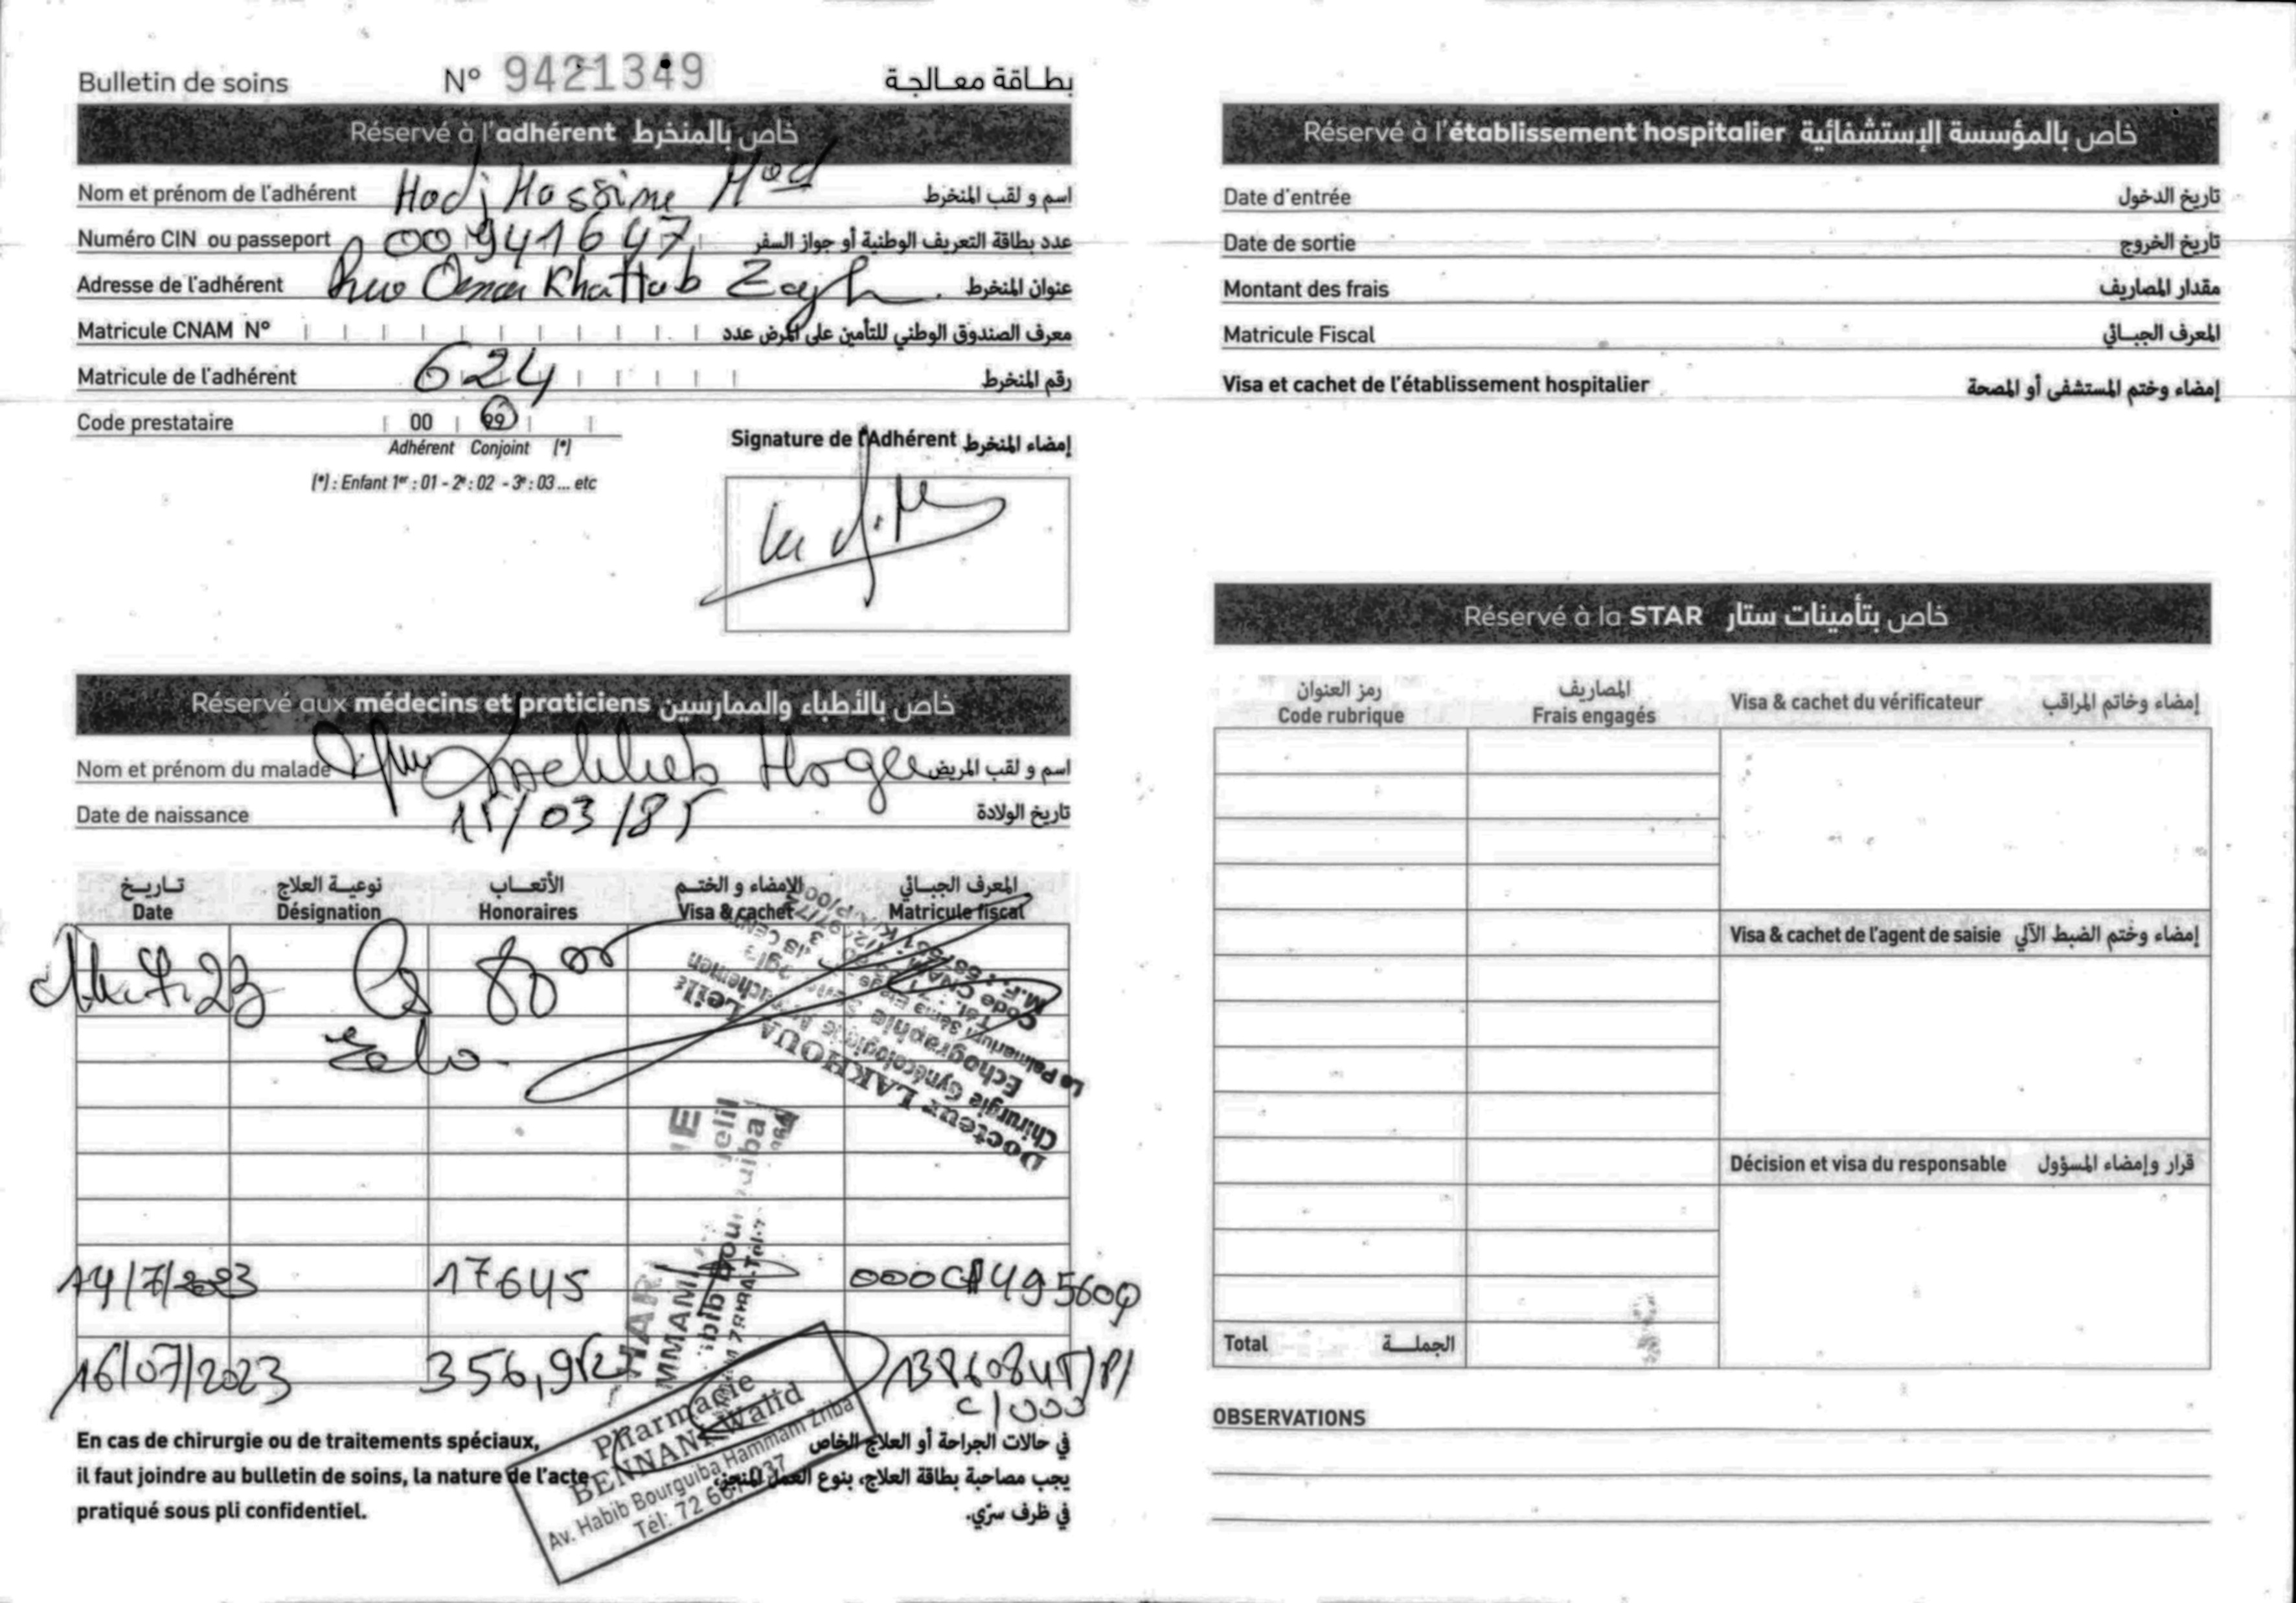 Bulletin de soins N° 9421349 بطاقة معالجة
Réservé à l'adhérent خاص بالمنخرط
Nom et prénom de l'adhérent Hadj Hassine Med اسم و لقب المنخرط
Numéro CIN ou passeport 00941647 عدد بطاقة التعريف الوطنية أو جواز السفر
Adresse de l'adhérent Rue Omar Khattab عنوان المنخرط
Matricule CNAM N° معرف الصندوق الوطني للتأمين على المرض عدد
Matricule de l'adhérent 624 رقم المنخرط
Code prestataire 00 99
Adhérent Conjoint (*)
(*) : Enfant 1er : 01 - 2e : 02 - 3e : 03 ... etc
Signature de l'Adhérent إمضاء المنخرط
Réservé aux médecins et praticiens خاص بالأطباء والممارسين
Nom et prénom du malade اسم و لقب المريض
Date de naissance 15/03/85 تاريخ الولادة
تاريخ نوعية العلاج الأتعاب الإمضاء و الختم المعرف الجبائي
Date Désignation Honoraires Visa & cachet Matricule fiscal
23 Cs 80
Echo
Docteur LAKHOUA Leila
Chirurgie Gynécologique
Echographie
14/7/2023 17645
16/07/2023 356,912
Pharmacie
BENNANI Walid
Av. Habib Bourguiba Hammam Zriba
Tél: 72
En cas de chirurgie ou de traitements spéciaux,
il faut joindre au bulletin de soins, la nature de l'acte
pratiqué sous pli confidentiel.
في حالات الجراحة أو العلاج الخاص
يجب مصاحبة بطاقة العلاج، بنوع العمل المنجز،
في ظرف سرّي.
Réservé à l'établissement hospitalier خاص بالمؤسسة الإستشفائية
Date d'entrée تاريخ الدخول
Date de sortie تاريخ الخروج
Montant des frais مقدار المصاريف
Matricule Fiscal المعرف الجبائي
Visa et cachet de l'établissement hospitalier إمضاء وختم المستشفى أو المصحة
Réservé à la STAR خاص بتأمينات ستار
رمز العنوان المصاريف
Code rubrique Frais engagés Visa & cachet du vérificateur إمضاء وخاتم المراقب
Visa & cachet de l'agent de saisie إمضاء وختم الضبط الآلي
Décision et visa du responsable قرار وإمضاء المسؤول
Total الجملة
OBSERVATIONS